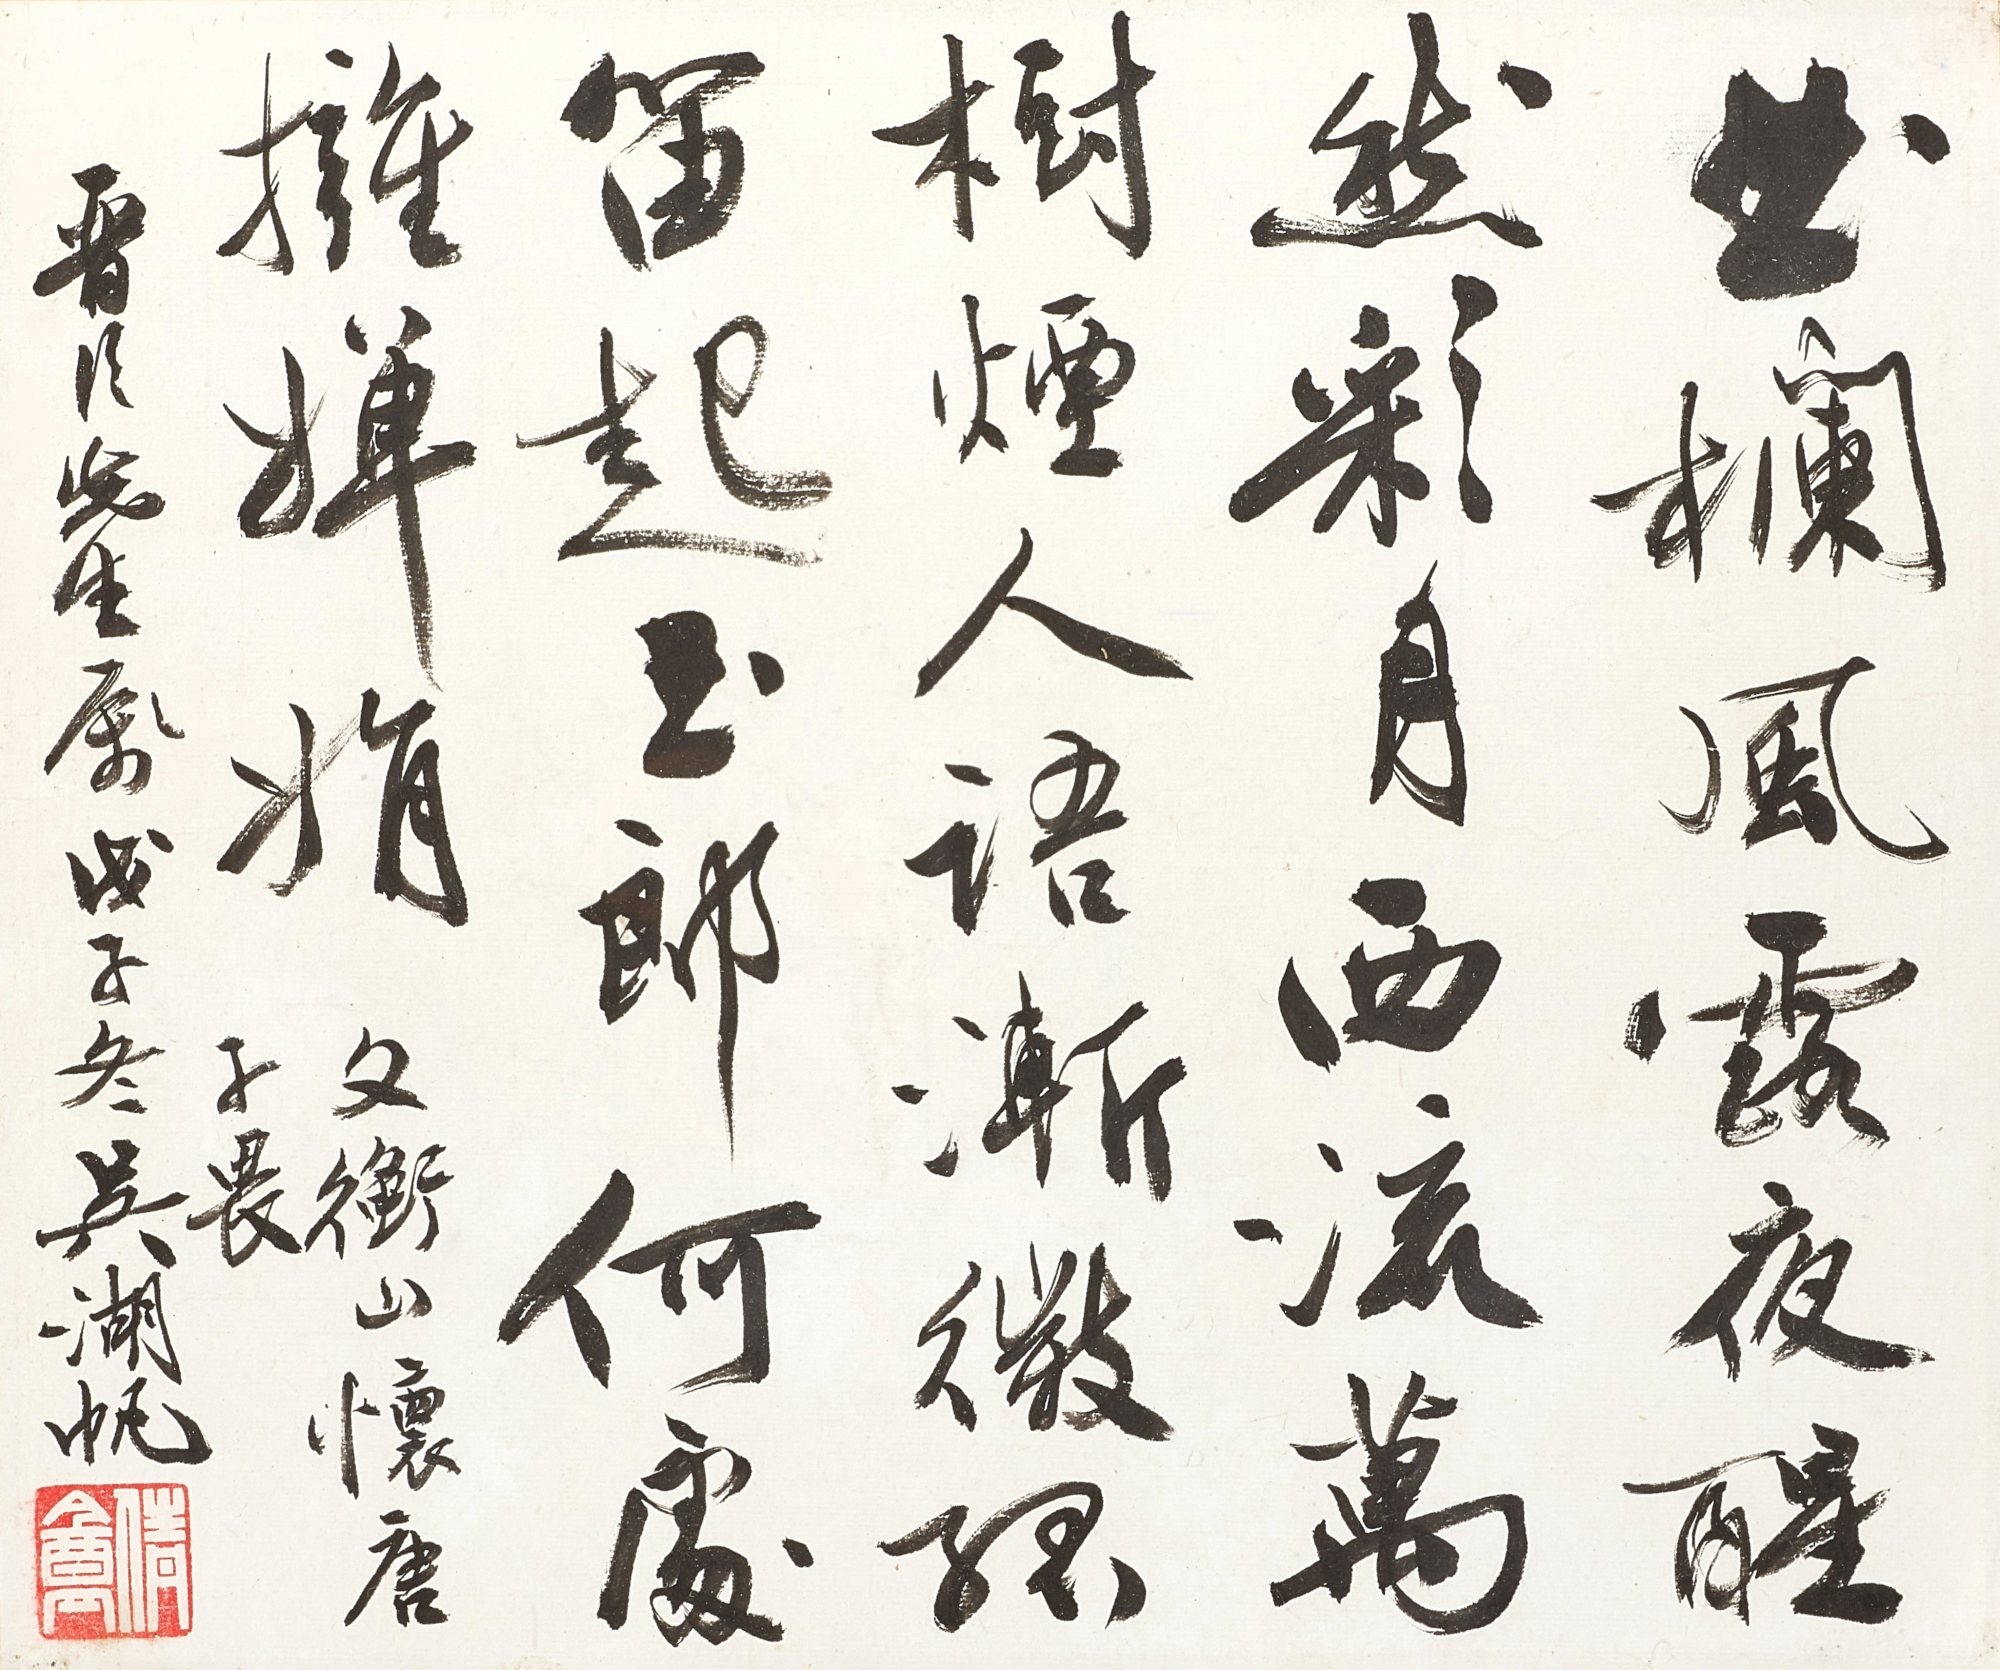 曲欄風露夜醒
然彩月西流萬
樹煙人語漸微孤
笛起玉郎何處
擁嬋娟 文衡山懷唐
子畏
晉 先生屬 戊子冬 吳湖帆
倩盦